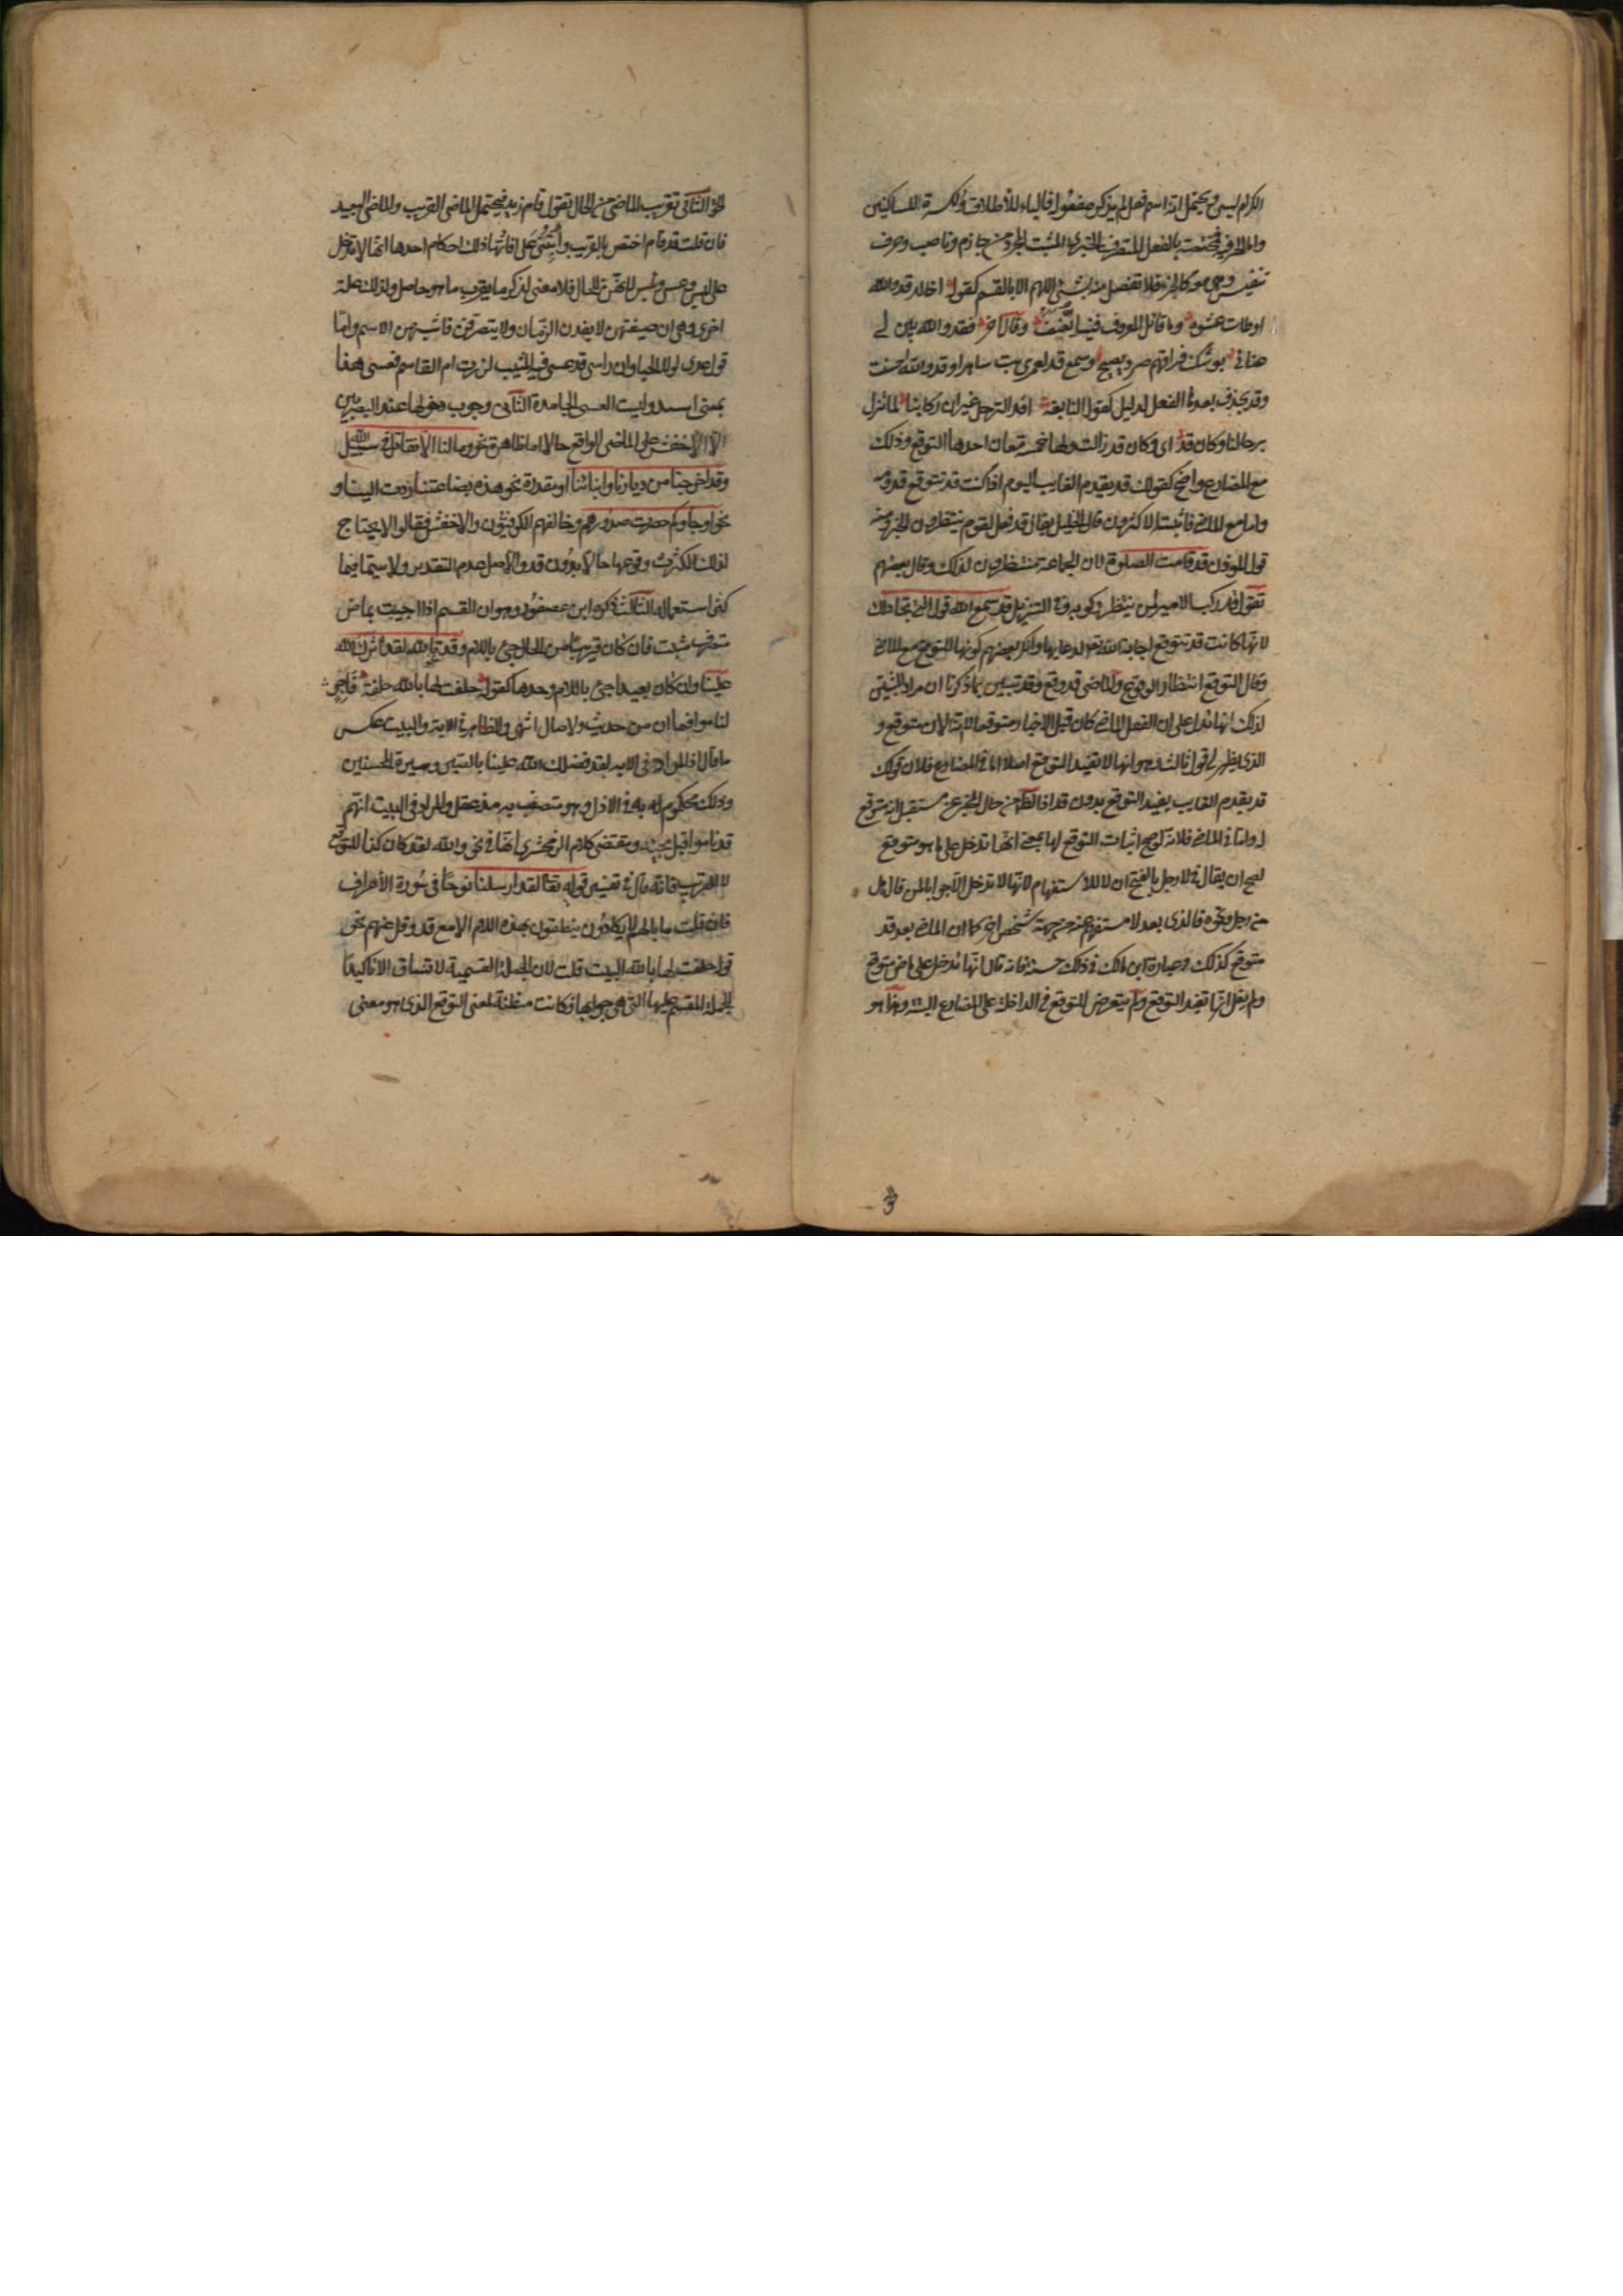 الكرام ليس ويحتمل انه اسم فعل لم يذكر مفعوله فالياء للاطلاق والكسرة للساكنين
واما الحرفية فمختصة بالفعل المتصرف الخبرى المثبت المجرد من جازم وناصب وحرف
تنفيس وهى معه كالجزء فلا تفصل منه بشئ اللهم الا بالقسم كقوله اخالد قد والله
اوطات عشوة وما قائل المعروف فينا يعنف وقال آخر فقد والله بين لى
عنائى بوشك فراقهم صرد يصيح وسمع قد لعمرى بت ساهرا وقد والله احسنت
وقد يحذف بعدها الفعل لدليل كقول النابغة افد الترحل غير ان ركابنا لما تزل
برحالنا وكان قد اى وكان قد زالت ولها خمسة معان احدها التوقع وذلك
مع المضارع واضح كقولك قد يقدم الغايب اليوم اذا كنت تتوقع قدومه
واما مع الماضى فاثبته الاكثرون قال الخليل يقال قد فعل لقوم ينتظرون الخبر ومنه
قول المؤذن قد قامت الصلوة لان الجماعة منتظرون لذلك وقال بعضهم
تقول قد ركب الامير لمن ينتظر ركوبه وفى التنزيل قد سمع الله قول التى تجادلك
لانها كانت تتوقع اجابة الله تعالى لدعائها وانكر بعضهم كونها للتوقع مع الماضى
وقال التوقع انتظار الوقوع والماضى قد وقع وقد تبين بما ذكرنا ان مراد المثبتين
لذلك انها تدل على ان الفعل الماضى كان قبل الاخبار متوقعا لا انه الان متوقع و
الذى يظهر لى قول ثالث وهو انها لا تفيد التوقع اصلا اما فى المضارع فلان قولك
قد يقدم الغايب يفيد التوقع بدون قد اذ الظاهر من حال المخبر عن مستقبل انه متوقع
له واما فى الماضى فلانه لو صح اثبات التوقع لها بمعنى انها تدخل على ما هو متوقع
لصح ان يقال فى لا رجل بالفتح ان لا للاستفهام لانها لا تدخل الا جوابا لمن قال هل
من رجل ونحوه فالذى بعد لا مستفهم عنه من جهة شخص اخر كما ان الماضى بعد قد
متوقع كذلك وعبارة ابن مالك فى ذلك حسنة فانه قال انها تدخل على ماض متوقع
ولم يقل انها تفيد التوقع ولم يتعرض للتوقع فى الداخلة على المضارع البتة وهذا هو
الحق الثانى تقريب الماضى من الحال تقول قام زيد فيحتمل الماضى القريب والماضى البعيد
فان قلت قد قام اختص بالقريب وانبنى على افادتها ذلك احكام احدها انها لا تدخل
على ليس وعسى ونعم وبئس لانهن للحال فلا معنى لذكر ما يقرب ما هو حاصل ولذلك علة
اخرى وهى ان صيغهن لا يفدن الزمان ولا يتصرفن فاشبهن الاسم واما
قول عدى لولا الحيا وان راسى قد عسى فيه المشيب لزرت ام القاسم فعسى هنا
بمعنى اشتد وليست العسى الجامدة الثانى وجوب دخولها عند البصريين
الا الاخفش على الماضى الواقع حالا اما ظاهرة نحو وما لنا الا نقاتل فى سبيل الله
وقد اخرجنا من ديارنا وابنائنا او مقدرة نحو هذه بضاعتنا ردت الينا و
نحو او جاؤكم حصرت صدورهم وخالفهم الكوفيون والاخفش فقالوا لا يحتاج
لذلك لكثرت وقوعها حالا بدون قد والاصل عدم التقدير ولا سيما فيما
كثر استعماله الثالث ذكره ابن عصفور وهو ان القسم اذا اجيب بماض
متصرف مثبت فان كان قريبا من الحال جئ باللام وقد تالله لقد آثرك الله
علينا وان كان بعيدا جئ باللام وحدها كقوله حلفت لها بالله حلفة فاجر
لناموا فما ان من حديث ولا صال انتهى والظاهر فى الاية والبيت عكس
ما قال اذ المراد فى الايه لقد فضلك الله علينا بالصبر وسيرة المحسنين
وذلك محكوم له به فى الازل وهو متصف به مذ عقل والمراد فى البيت انهم
قد ناموا قبل مجيئه ومقتضى كلام الزمخشرى انها فى نحو والله لقد كان كذا للتوقع
لا للتقريب فانه قال فى تفسير قوله تعالى لقد ارسلنا نوحا فى سورة الاعراف
فان قلت ما بالهم لا يكادون ينطقون بهذه اللام الا مع قد وقل عنهم نحو
قوله حلفت لها بالله البيت قلت لان الجملة القسمية لا تساق الا تاكيدا
للجملة المقسم عليها التى هى جوابها فكانت مظنة لمعنى التوقع الذى هو معنى